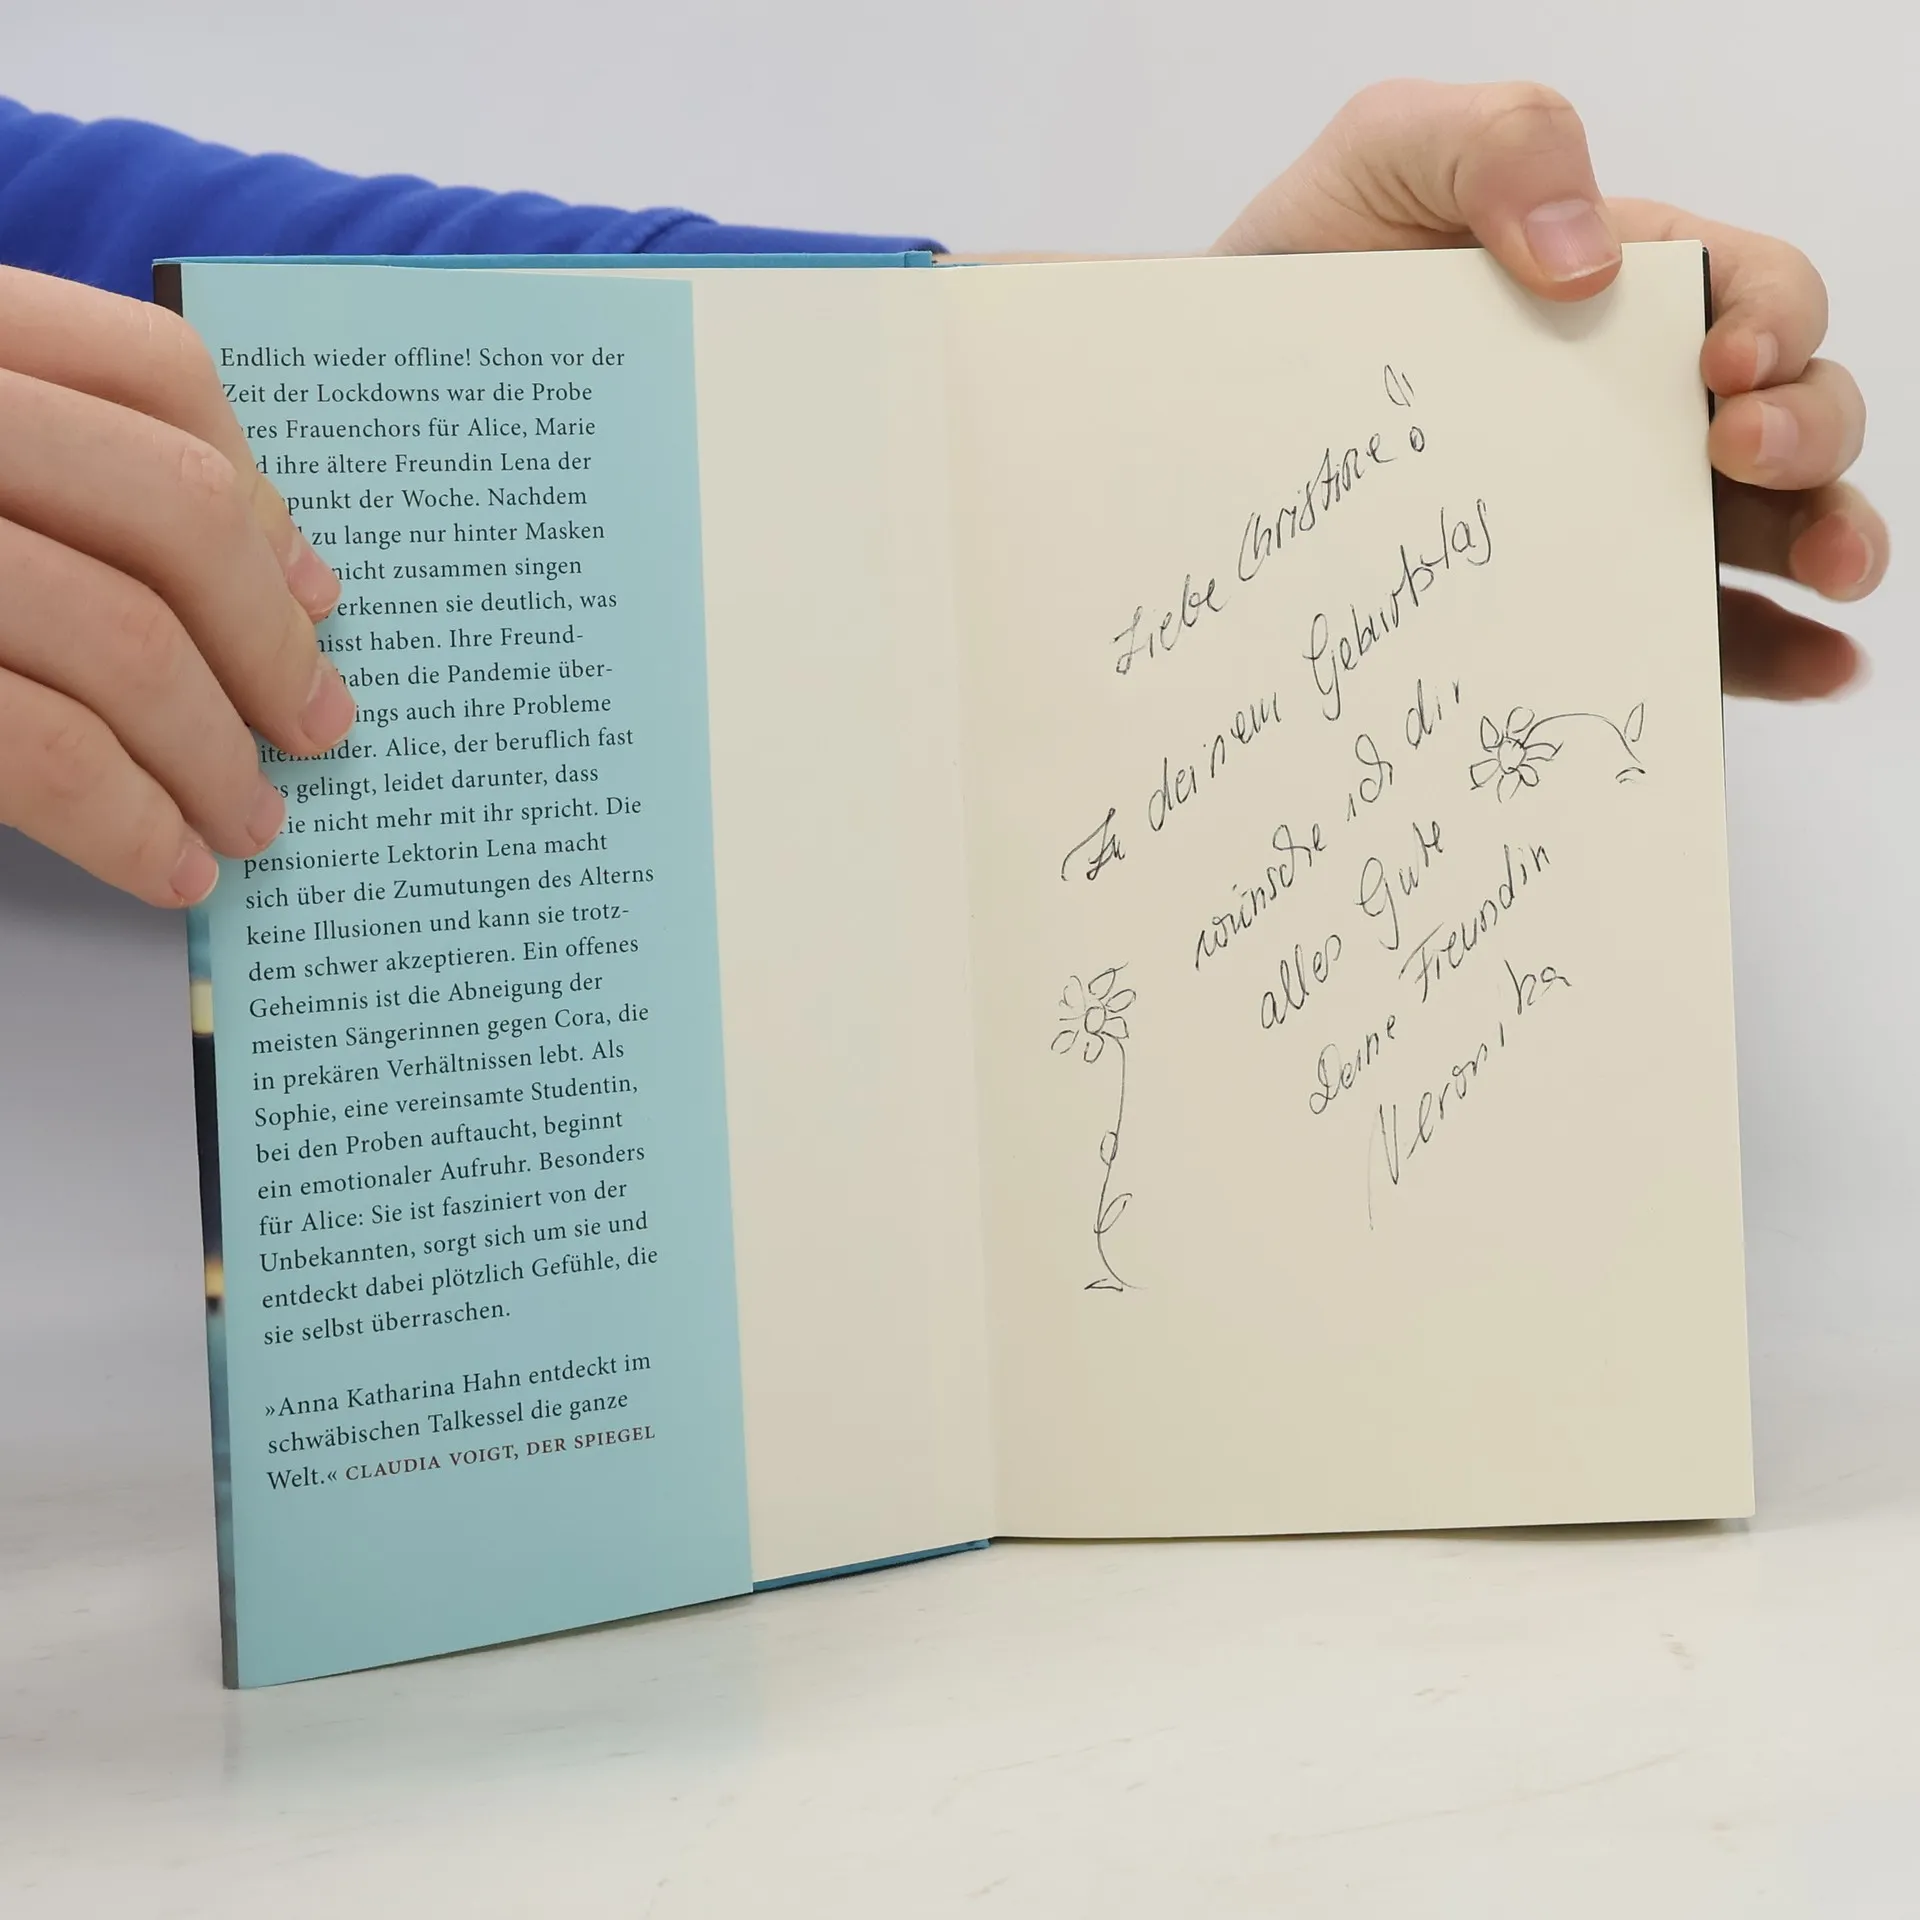 Endlich wieder offline! Schon vor der
Zeit der Lockdowns war die Probe
res Frauenchors für Alice, Marie
d ihre ältere Freundin Lena der
punkt der Woche. Nachdem
zu lange nur hinter Masken
nicht zusammen singen
erkennen sie deutlich, was
isst haben. Ihre Freund-
haben die Pandemie über-
ings auch ihre Probleme
nder. Alice, der beruflich fast
s gelingt, leidet darunter, dass
ie nicht mehr mit ihr spricht. Die
pensionierte Lektorin Lena macht
sich über die Zumutungen des Alterns
keine Illusionen und kann sie trotz-
dem schwer akzeptieren. Ein offenes
Geheimnis ist die Abneigung der
meisten Sängerinnen gegen Cora, die
in prekären Verhältnissen lebt. Als
Sophie, eine vereinsamte Studentin,
bei den Proben auftaucht, beginnt
ein emotionaler Aufruhr. Besonders
für Alice: Sie ist fasziniert von der
Unbekannten, sorgt sich um sie und
entdeckt dabei plötzlich Gefühle, die
sie selbst überraschen.
»Anna Katharina Hahn entdeckt im
schwäbischen Talkessel die ganze
Welt.« CLAUDIA VOIGT, DER SPIEGEL
Liebe Christine!
Zu deinem Geburtstag
wünsche ich dir
alles Gute
Deine Freundin
Veronika